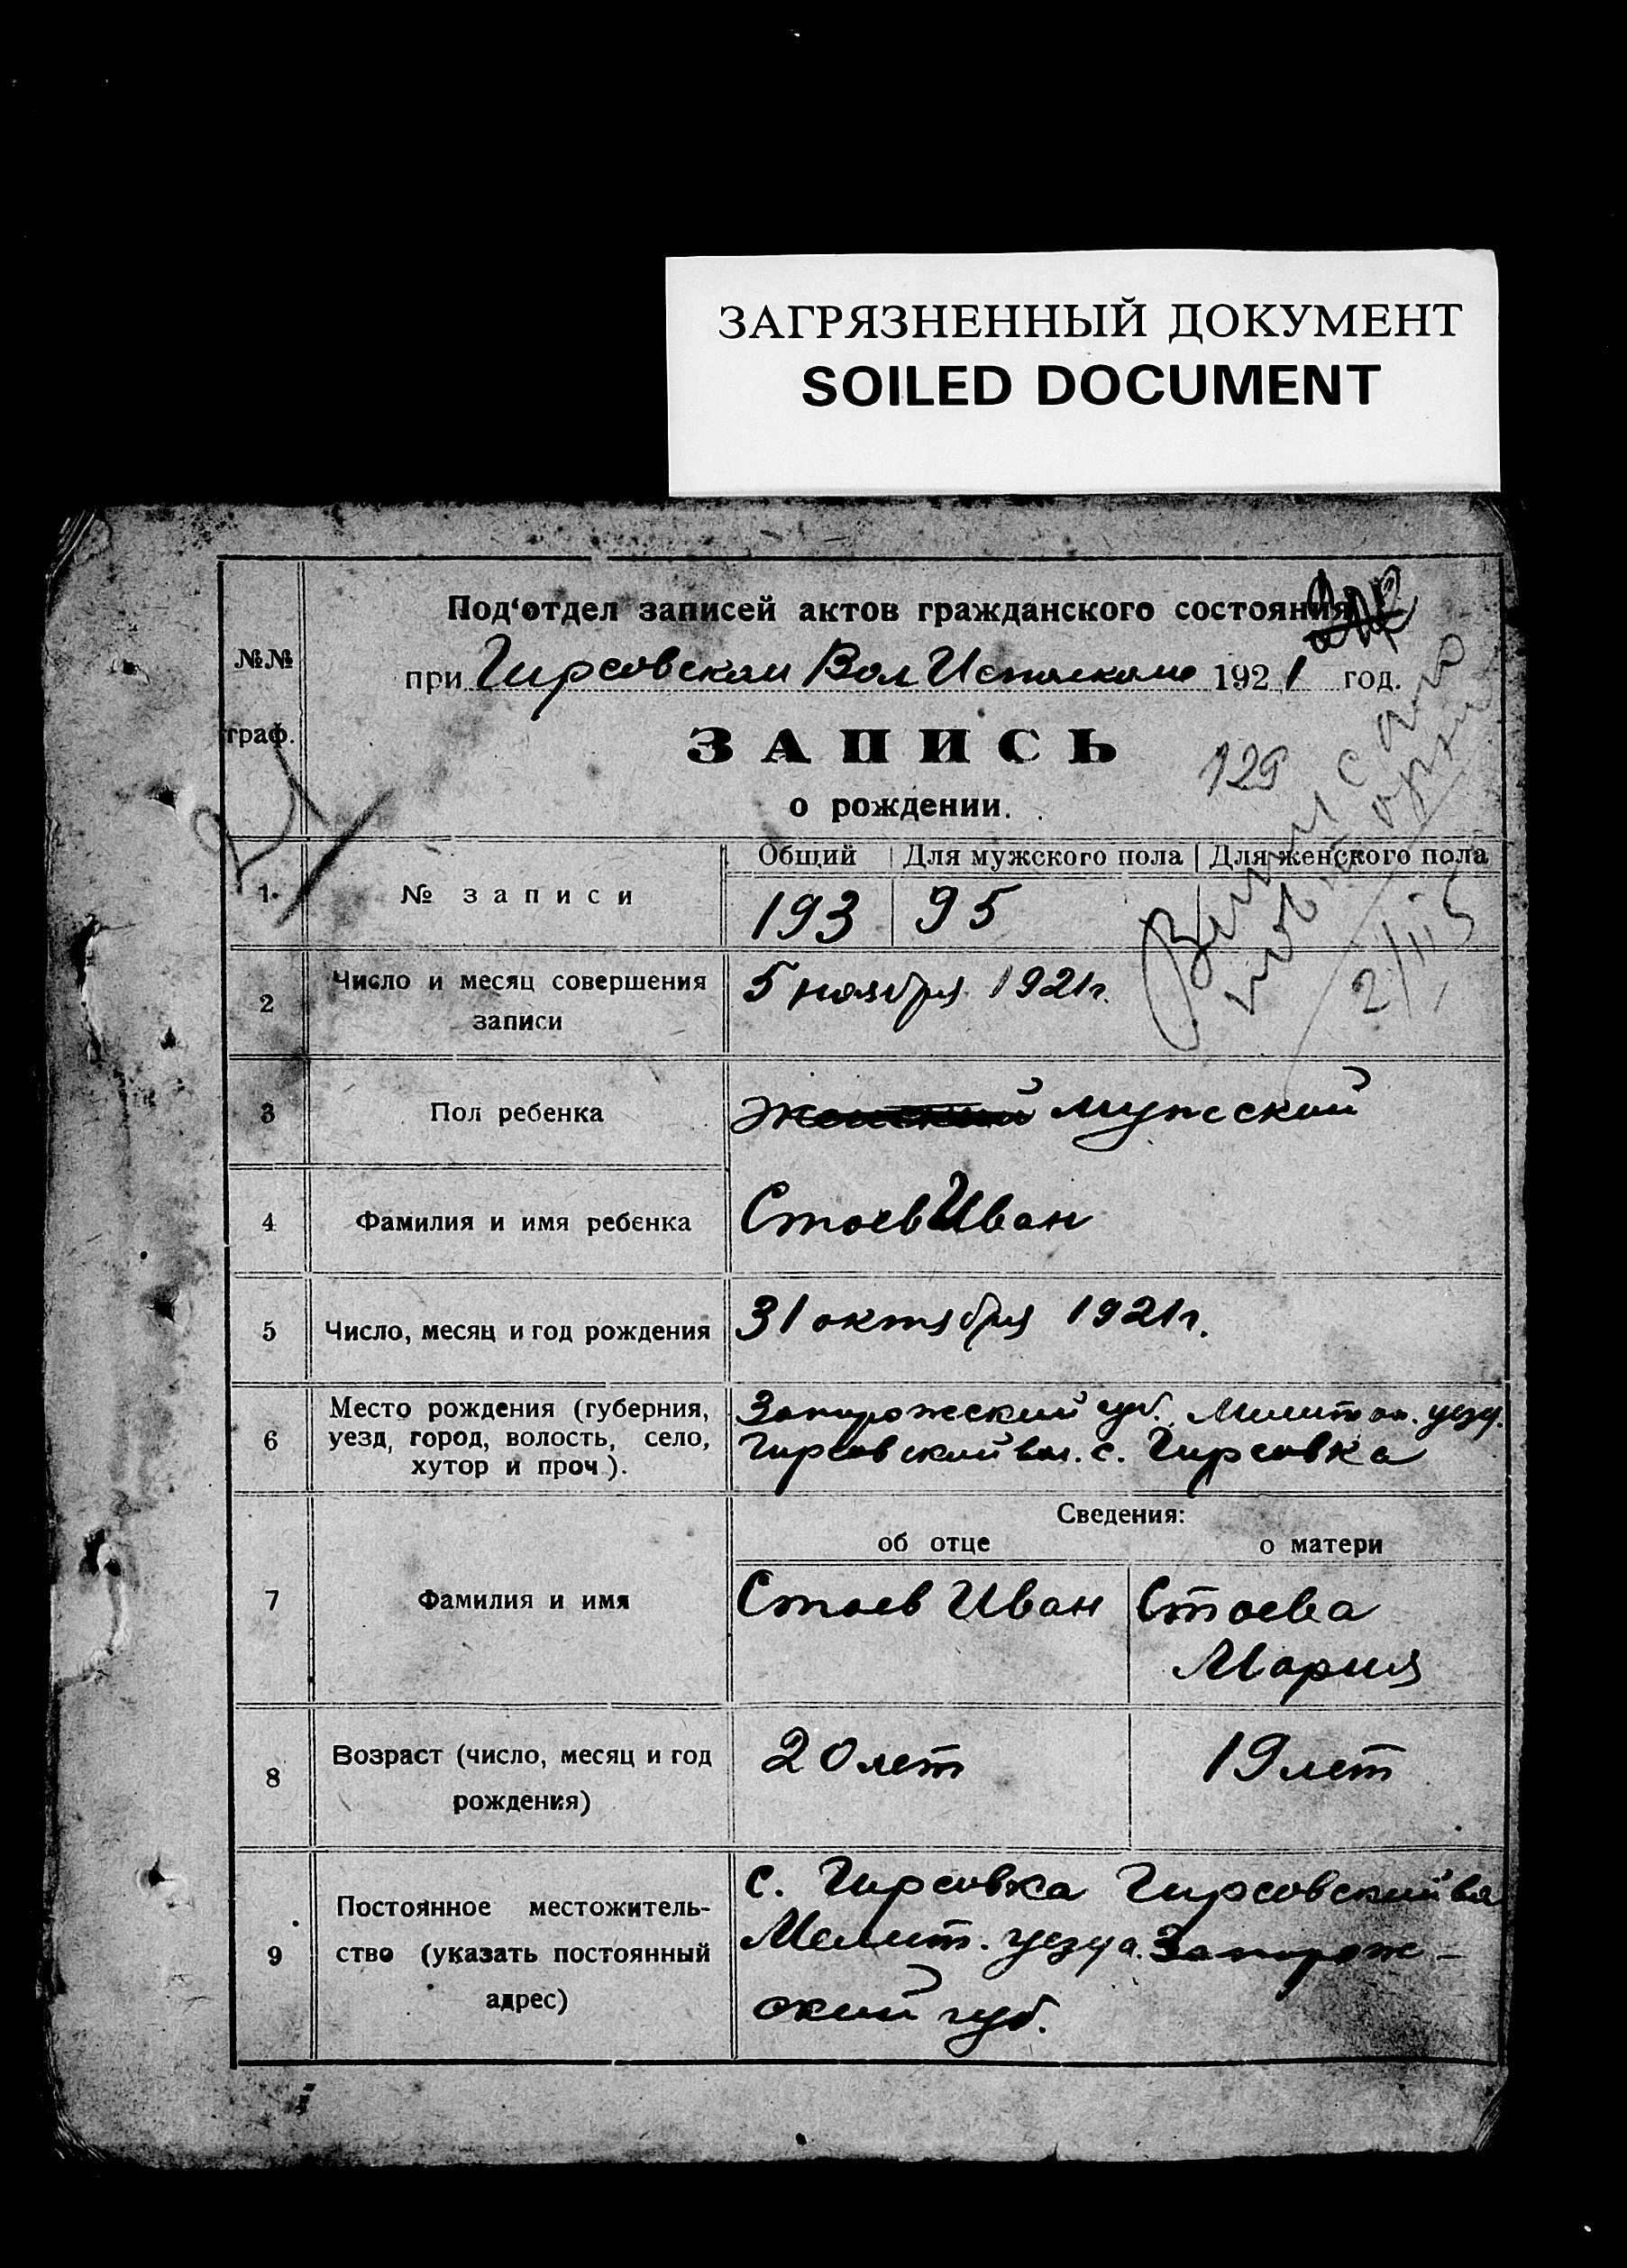 ЗАГРЯЗНЕННЫЙ ДОКУМЕНТ
SOILED DOCUMENT
Под‘отдел записей актов гражданского состояния
№№
граф.
при Гирсовском Вол Исполкоме 1921 год.
ЗАПИСЬ
129
о рождении.
Выписано
2/II
Общий Для мужского пола Для женского пола
1 № записи 193 95
2 Число и месяц совершения
записи
5 ноября 1921г.
3 Пол ребенка Женский Мужеский
4 Фамилия и имя ребенка Стоев Иван
5 Число, месяц и год рождения 31 октября 1921г.
6 Место рождения (губерния,
уезд, город, волость, село,
хутор и проч).
Запорожский губ. Мелитоп. уезд.
Гирсовский вол. с. Гирсовка
Сведения:
об отце о матери
7 Фамилия и имя Стоев Иван Стоева
Мария
8 Возраст (число, месяц и год
рождения)
20 лет 19 лет
9 Постоянное местожитель-
ство (указать постоянный
адрес)
с. Гирсовка Гирсовский во
Мелит. уезда. Запорож-
ский губ.